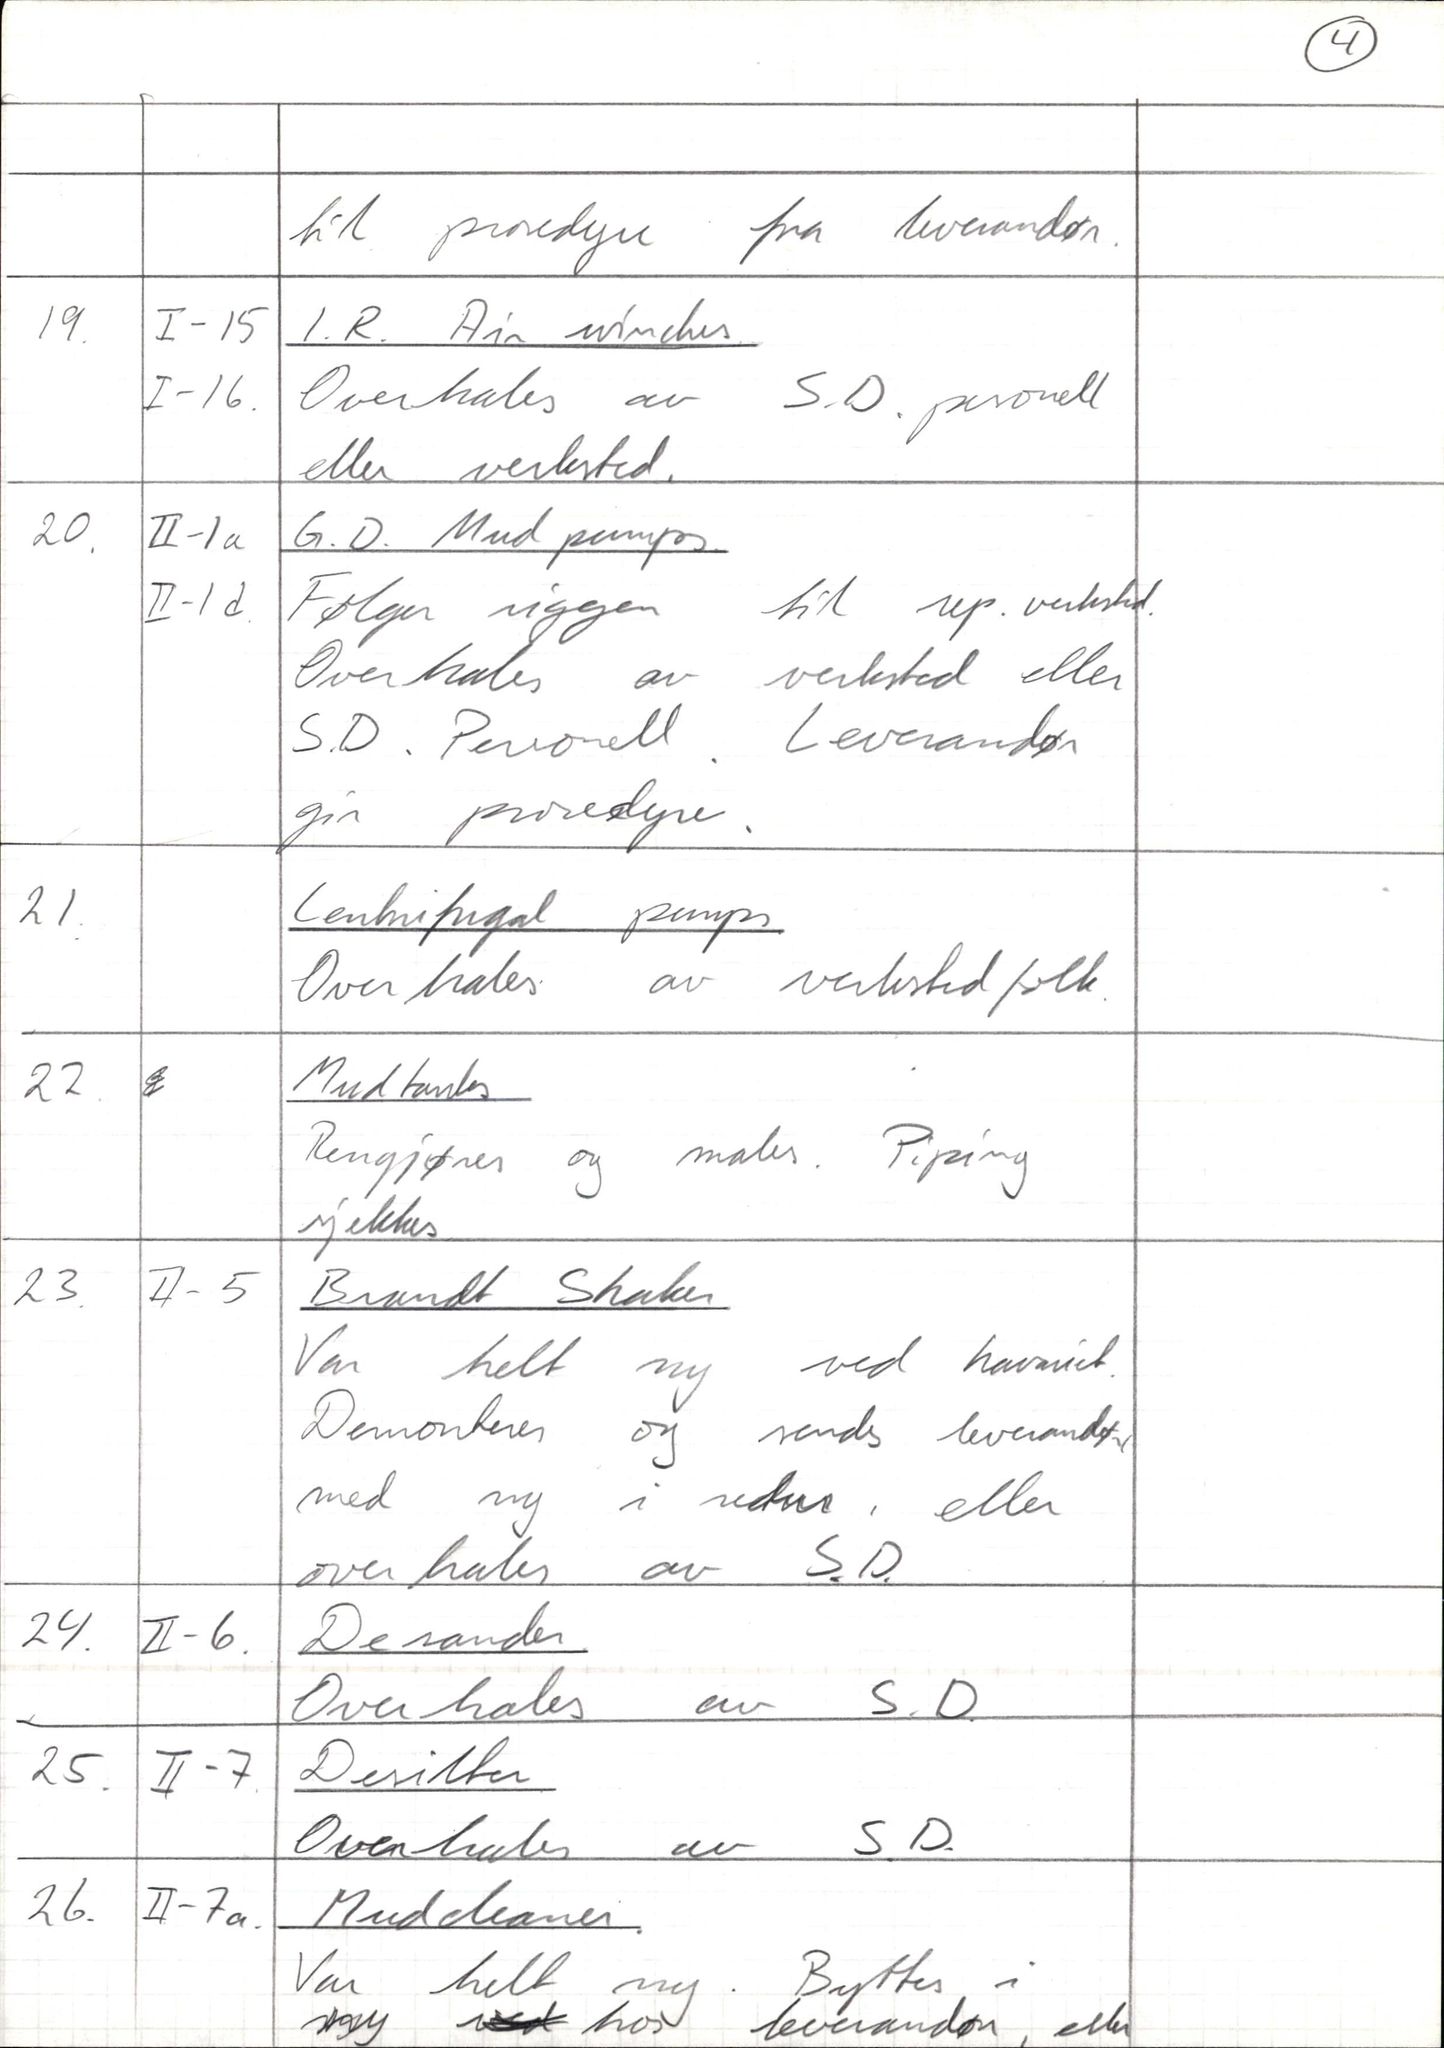 4
til prosedyre fra leverandør.
19. I-15 I.R. Air winches
I-16. Overhales av S.D. personell
eller verksted.
20. II-1a G.D. Mud pumps.
II-1d Følger riggen til rep. verksted.
Overhales av verksted eller
S.D. Personell. Leverandør
gir prosedyre.
21. Centrifugal pumps
Overhales av verksted folk.
22. Mudtanks
Rengjøres og males. Piping
sjekkes
23. II-5 Brandt Shaker
Var helt ny ved havariet.
Demonteres og sendes leverandør
med ny i retur, eller
overhales av S.D.
24. II-6. Desander
Overhales av S.D.
25. II-7. Desilter
Overhales av S.D.
26. II-7a. Mudcleaner.
Var helt ny. Byttes i
ny hos leverandør, eller